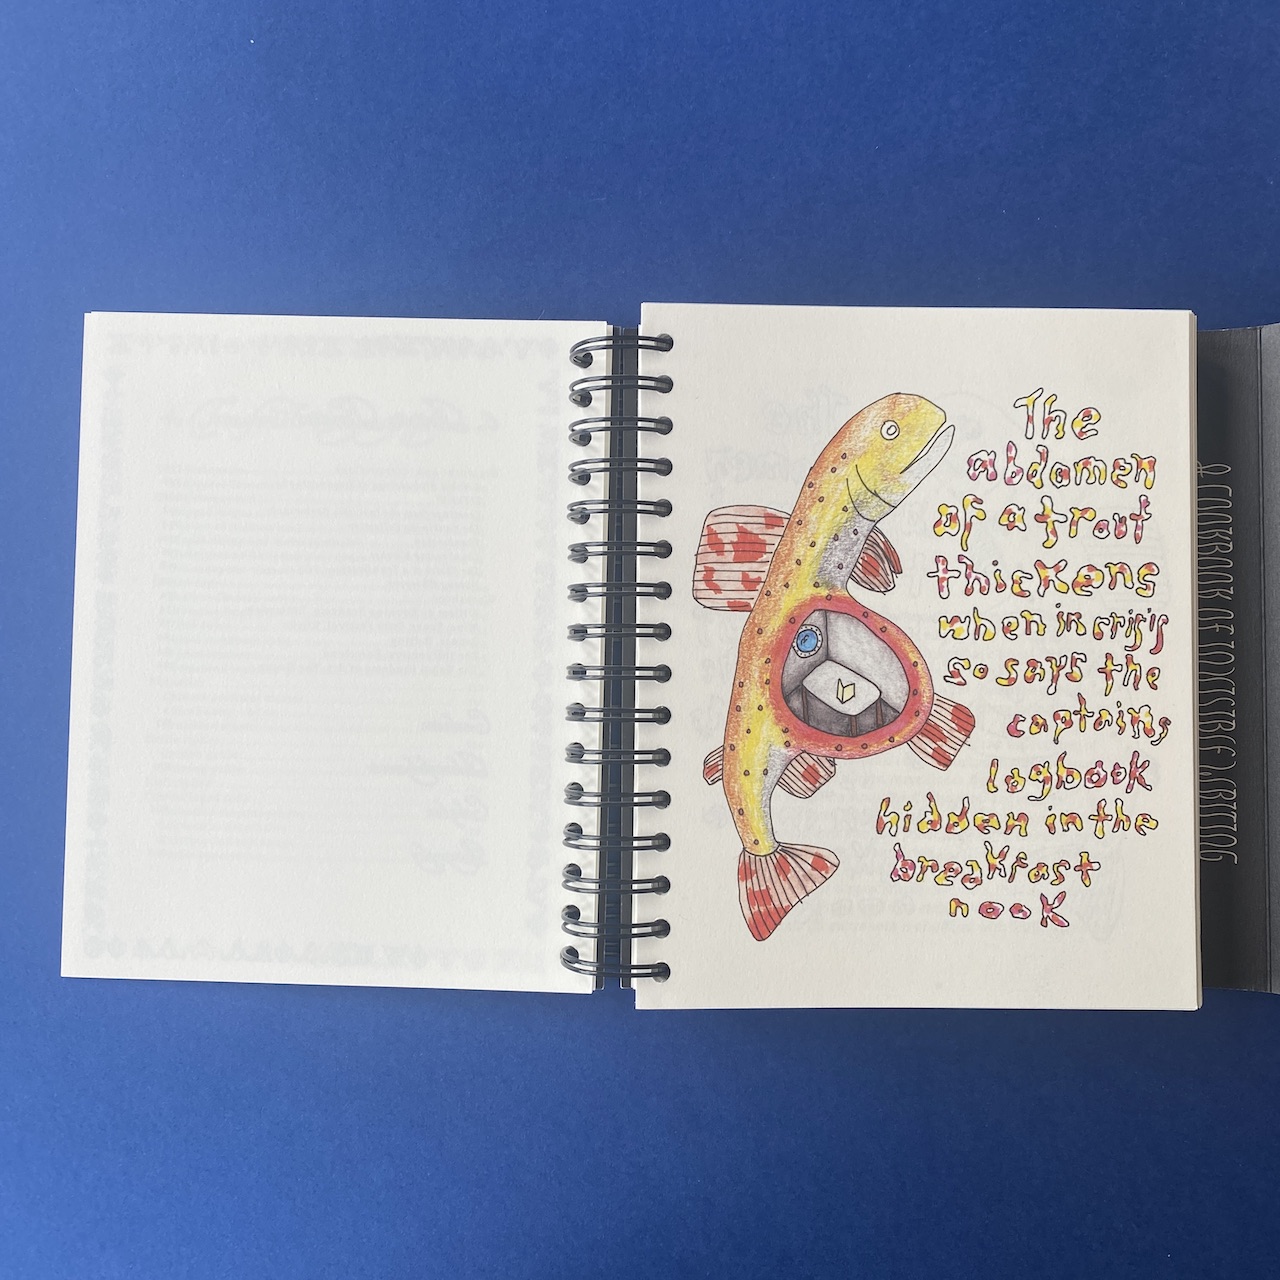 The
abdomen
of a trout
thickens
when in crisis
so says the
captains
logbook
hidden in the
breakfast
nook
A COOKBOOK OF INDIGESTIBLE WRITING